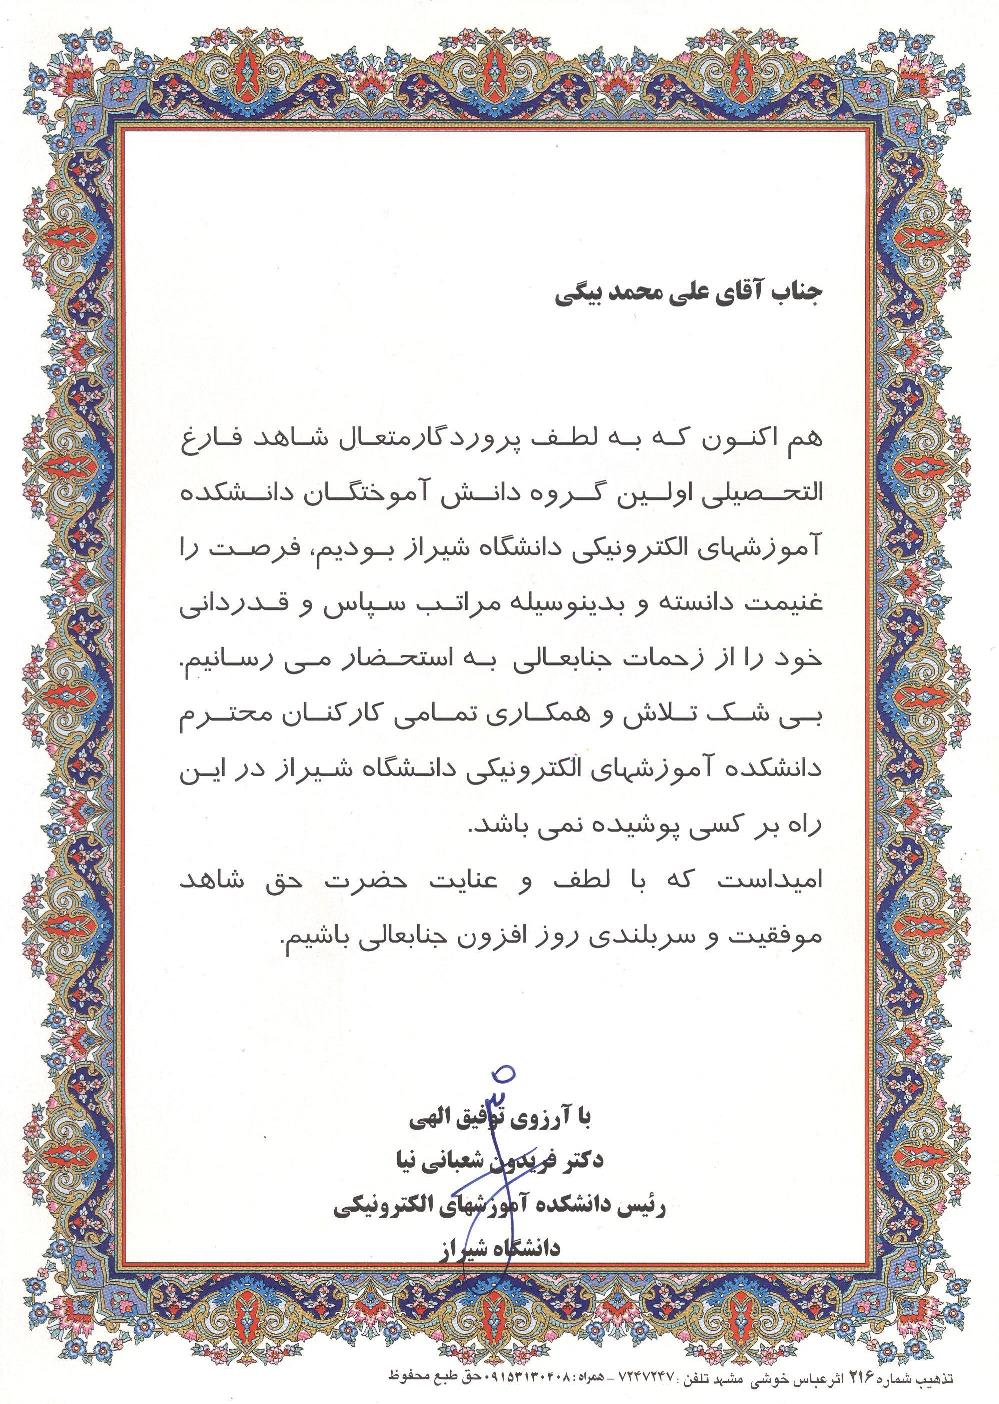 جناب آقای علی محمد بیگی
هم اکنون که به لطف پروردگارمتعال شاهد فارغ
التحصیلی اولین گروه دانش آموختگان دانشکده
آموزشهای الکترونیکی دانشگاه شیراز بودیم، فرصت را
غنیمت دانسته و بدینوسیله مراتب سپاس و قدردانی
خود را از زحمات جنابعالی به استحضار می رسانیم.
بی شک تلاش و همکاری تمامی کارکنان محترم
دانشکده آموزشهای الکترونیکی دانشگاه شیراز در این
راه بر کسی پوشیده نمی باشد.
امیداست که با لطف و عنایت حضرت حق شاهد
موفقیت و سربلندی روز افزون جنابعالی باشیم.
با آرزوی توفیق الهی
دکتر فریدون شعبانی نیا
رئیس دانشکده آموزشهای الکترونیکی
دانشگاه شیراز
تذهیب شماره ۲۱۶ اثر عباس خوشی مشهد تلفن : ۷۲۴۷۲۴۷ - همراه : ۰۹۱۵۳۱۳۰۴۰۸ حق طبع محفوظ